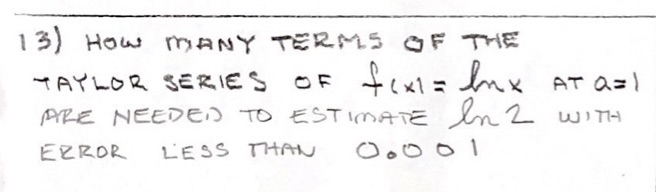 13) HOW MANY TERMS OF THE
TAYLOR SERIES OF f(x) = ln x AT a=1
ARE NEEDED TO ESTIMATE ln 2 WITH
ERROR LESS THAN 0.001